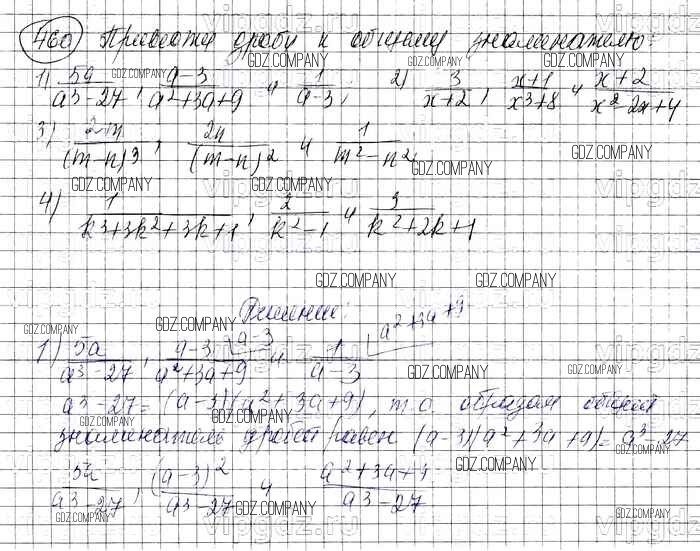 460 Приведите дроби к общему знаменателю:
1) 5a/(a³-27), (a-3)/(a²+3a+9) и 1/(a-3); 2) 3/(x+2), (x+1)/(x³+8) и (x+2)/(x²-2x+4)
3) 2m/(m-n)³, 2n/(m-n)² и 1/(m²-n²)
4) 1/(k³+3k²+3k+1), 2/(k²-1) и 3/(k²+2k+1)
Решение:
1) 5a/(a³-27), (a-3)/(a²+3a+9) (a-3 и 1/(a-3) (a²+3a+9
a³-27=(a-3)(a²+3a+9), т.о. образом общий
знаменатель дробей равен (a-3)(a²+3a+9)=a³-27
5a/(a³-27), (a-3)²/(a³-27) и (a²+3a+9)/(a³-27)
GDZ.COMPANY
vipgdz.ru